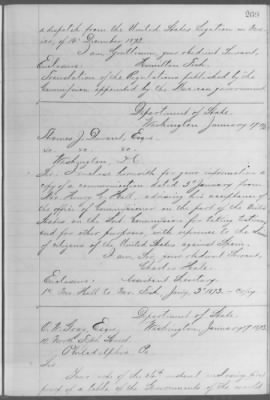 269
a dispatch from the United States Legation in Mex-
ico, of 16 December 1872.
I am, Gentlemen, your obedient Servant,
Enclosure: Hamilton Fish.
Translation of the Regulations published by the
Commission appointed by the Mexican government
Department of State
Washington, January 17
Thomas J. Durant, Esqre
Washington, D.C.
Sir: I enclose herewith for your information a
copy of a communication dated 3d January from
Henry C. Hall, advising his acceptance of
the office of Commissioner on the part of the United
States on the Commission for taking testimony
and for other purposes with reference to the
of citizens of the United States against Spain.
I am, Sir, your obedient Servant,
Charles Hale
Enclosure: Assistant Secretary.
Mr. Hall to Mr. Fish, Jany. 3, 1873 - Copy
Department of State
Esqre Washington, January 17, 1873
Street
Philadelphia Pa
Sir
Your note of the 14th instant enclosing
proof of a table of the Governments of the world